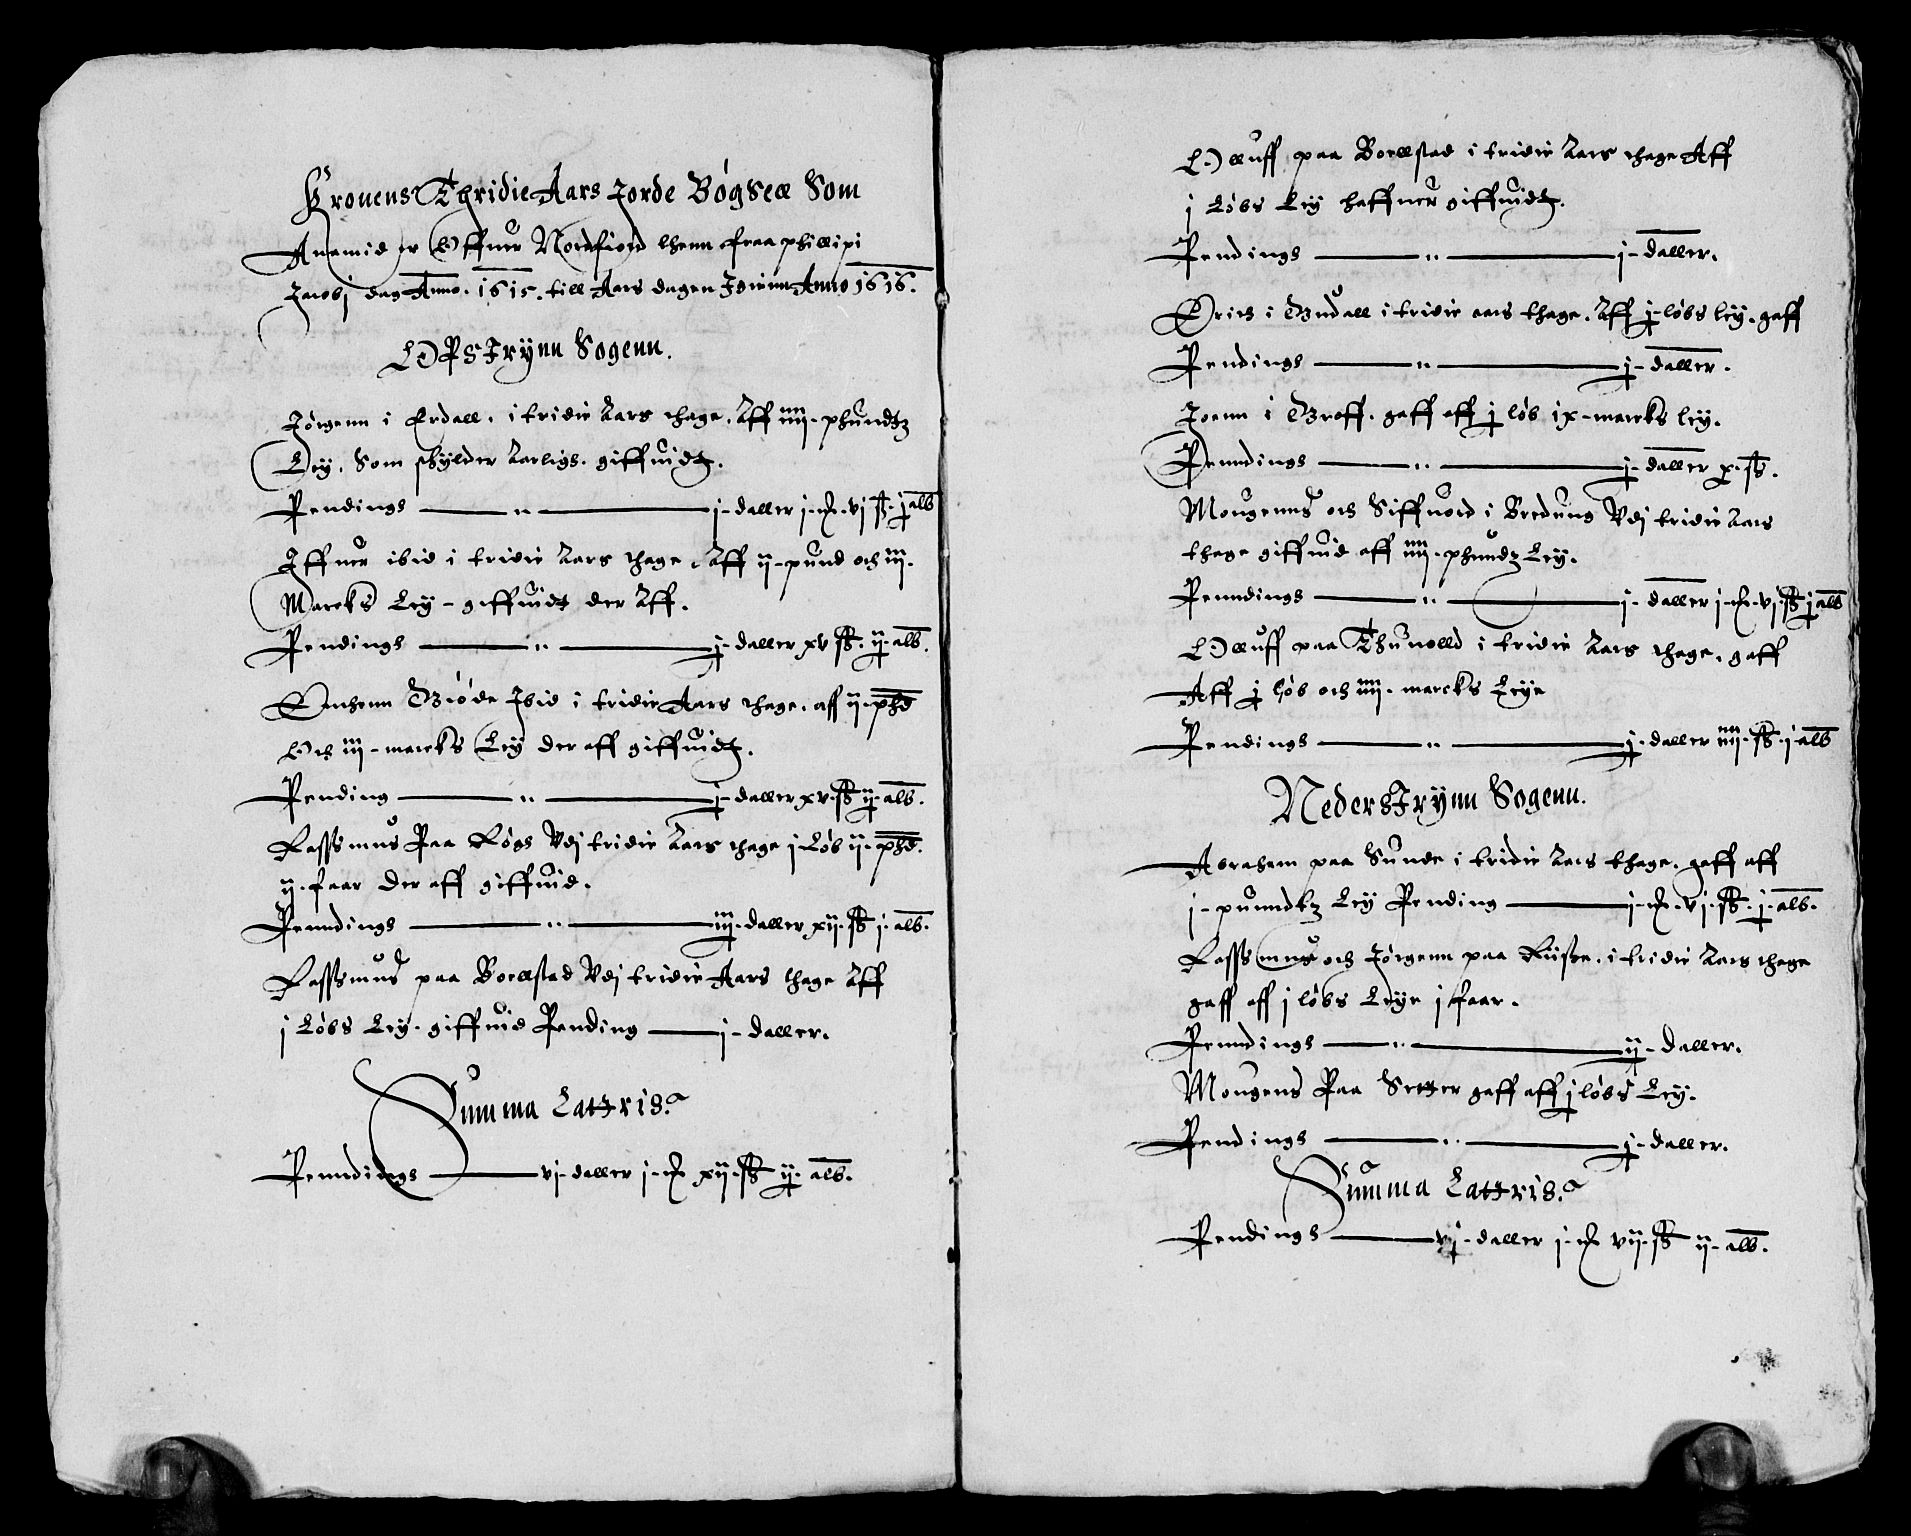 Cronens Thridie Aars Jorde Bögsell Som
Anamid er Offuer Nordfiord lhenn fraa phillipi
Jacobj dag Anno. 1615. till Aars dagen Igienn Anno 1616.
OPStrÿnn Sogenn.
Jörgenn i Erdall. i tridie Aars thage. Aff iiij. phundtz
Leÿ. Som skÿlder Aarligs. giffuidt.
Pendings ——— " ——— j - daller j - mk. vj ſß. j alb
Iffuer ibid i tridie Aars thage. Aff ij - pund och iij.
Marcks Leÿ - giffuidt der Aff.
Pendings ——— " ——— j - daller xv ſß. ij - alb.
Enhenn Biöde Ibid i tridie Aars thage. aff ij. phd
Och iij - marcks Leÿ der aff giffuidt.
Pending ——— " ——— j - daller xv. ſß ij - alb.
Rassmus Paa Rögh Vdj tridie Aars thage j Löb ij. phd.
ij. faar der aff giffuid.
Penndings ——— " ——— iij. daller xij. ſß j. alb.
Rassmus paa Boellstad Vdj tridie Aars thage Aff
j Löbs Leÿ. giffuid Pending —— j - daller.
Summa Lattris.
Penndings ——— vj - daller j - mk xij. ſß ij. alb.
Olluff paa Boellstad i tridie Aars thage Aff
j Löbs Leÿ haffuer giffuidt.
Pendings ——— " ——— j - daller.
Erich i Budall i tridie aars thage. Aff j - löbs leÿ. gaff
Pendings ——— " ——— j - daller.
Joenn i Groff. gaff aff j löb ix - marcks leÿ.
Penndings ——— " ——— j - daller x. ſß.
Mougenns och Siffuord i Bredung Vdj tridie Aars
thage giffuid aff iiij. phundz Leÿ.
Penndings ——— " ——— j - daller j - mk. vj. ſß j alb
Olluff paa Thuuolld i tridie Aars thage. gaff
Aff j löb och iiij. marcks Leÿe
Pendings ——— " ——— j - daller iiij. ſß. j - alb
NederStrÿnn Sogenn.
Abraham paa Sunde i tridie Aars thage. gaff aff
j - puundtz Leÿ Pending ——— j - mk. vj. ſß. j - alb.
Rassmus och Jörgenn paa Riise. i tridie Aars thage
gaff aff j löbs Leÿe j faar.
Penndings —— " ——— ij - daller.
Mougens Paa Setter gaff aff j löbs Leÿ.
Pendings ——— " ——— j - daller.
Summa Lattris.
Pendings ——— vj - daller j - mk vij. ſß ij - alb.